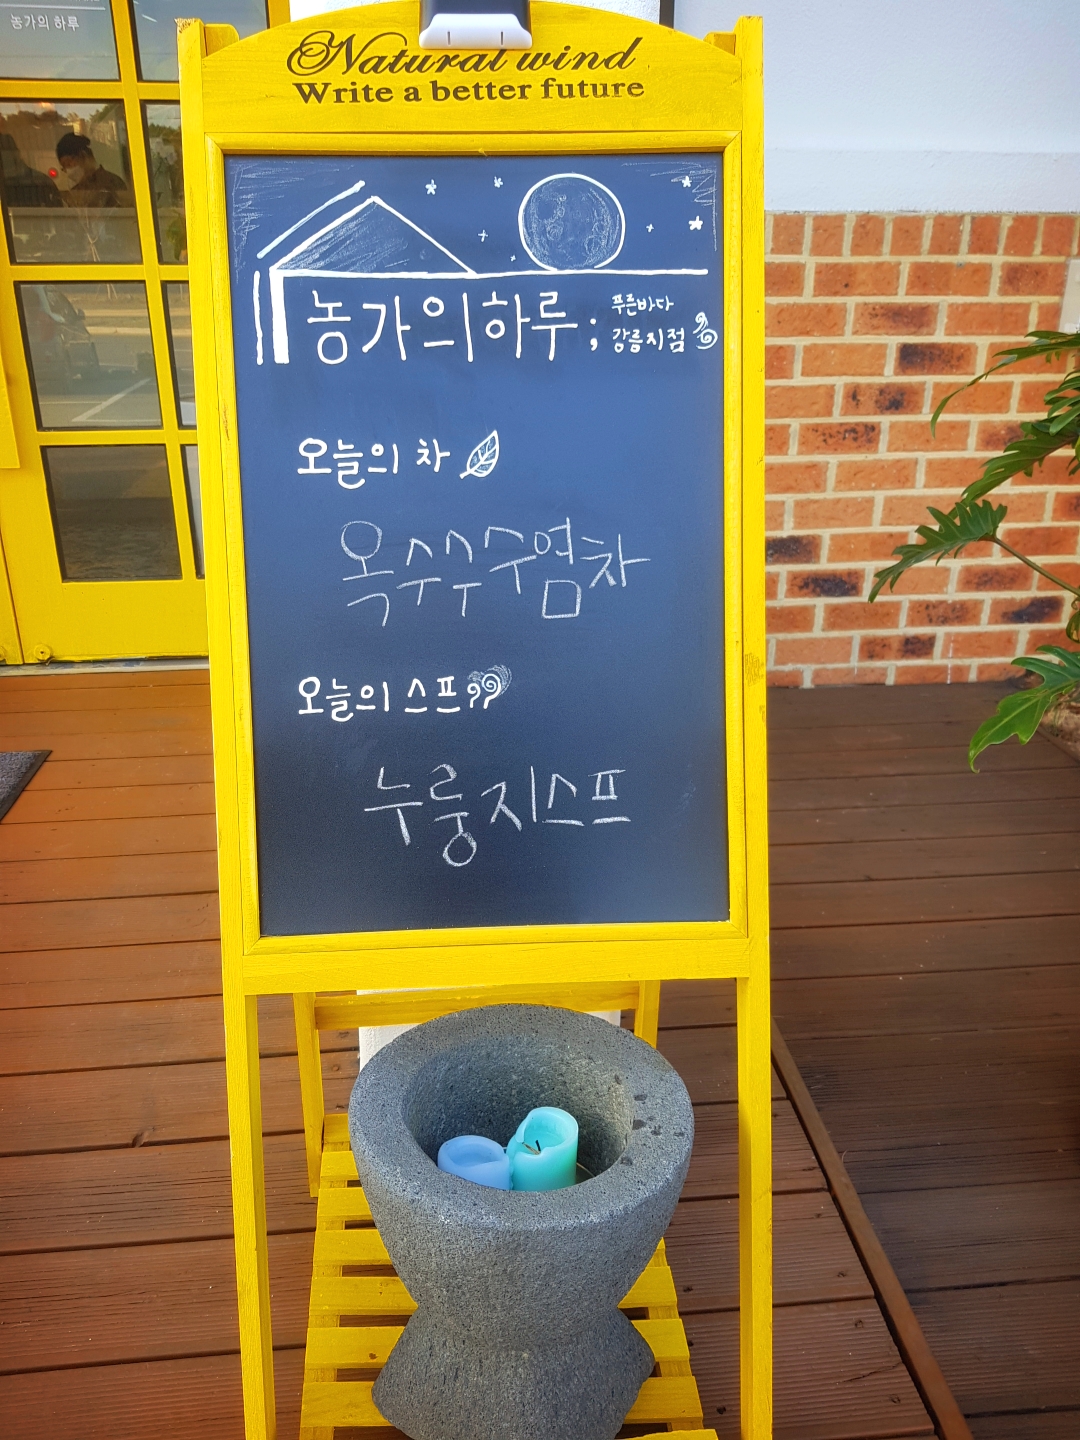 농가의 하루
Natural wind
Write a better future
농가의하루 ; 푸른바다
강릉지점
오늘의 차
옥수수수염차
오늘의 스프
누룽지스프